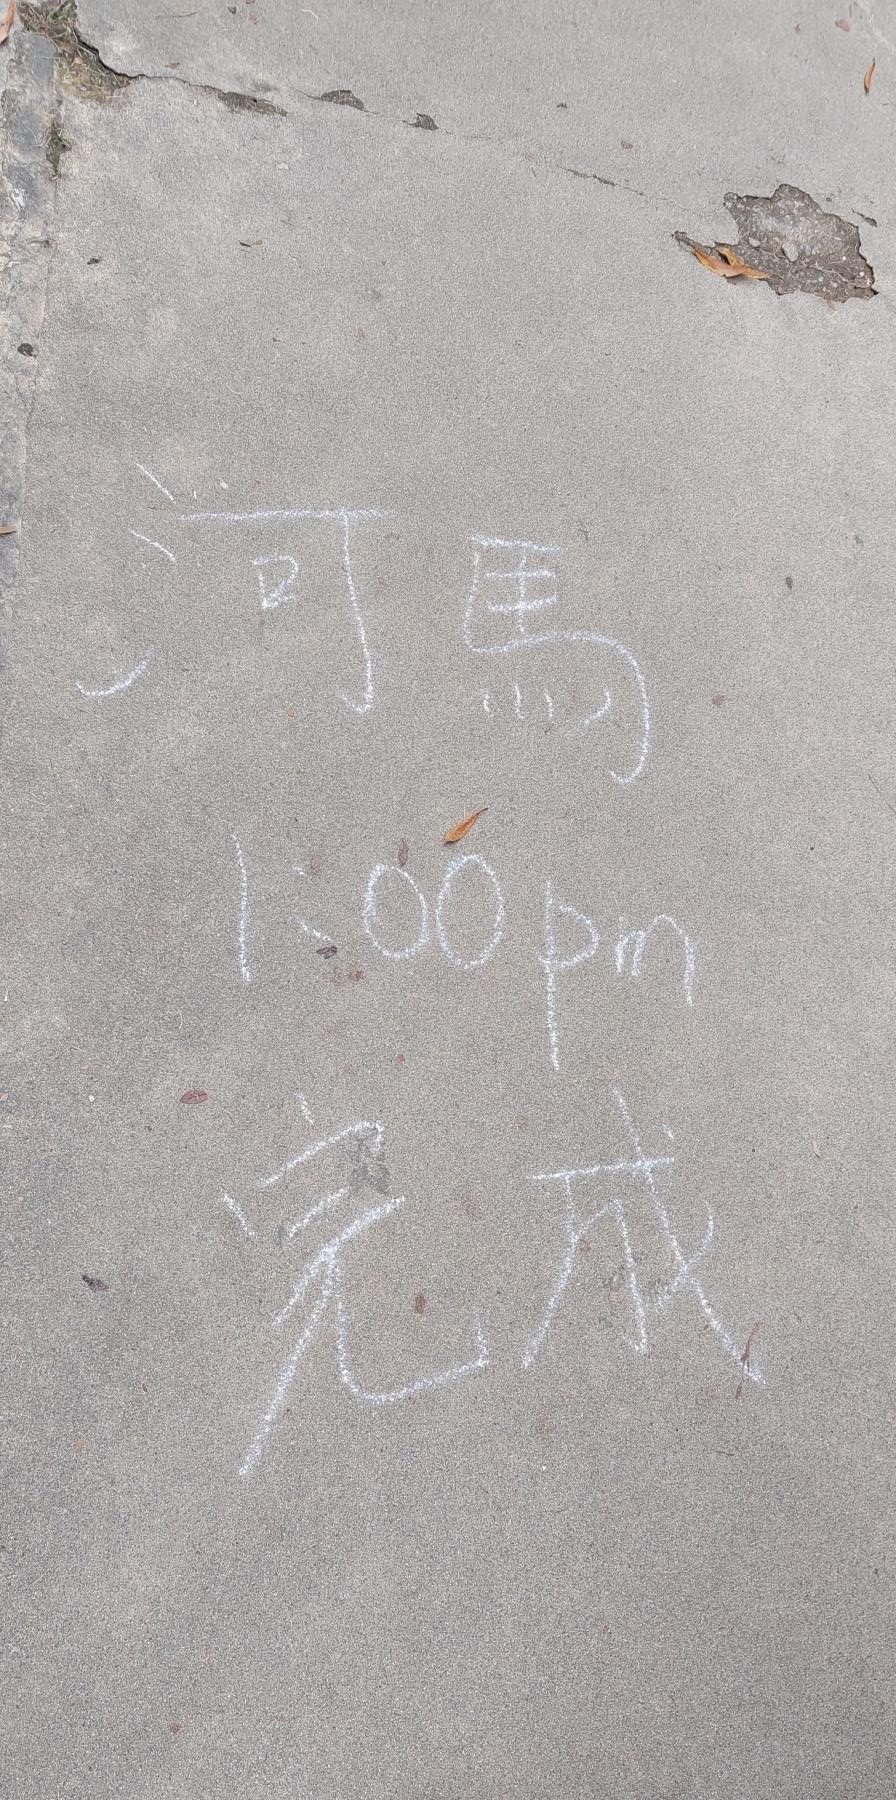 河馬
1:00pm
完成